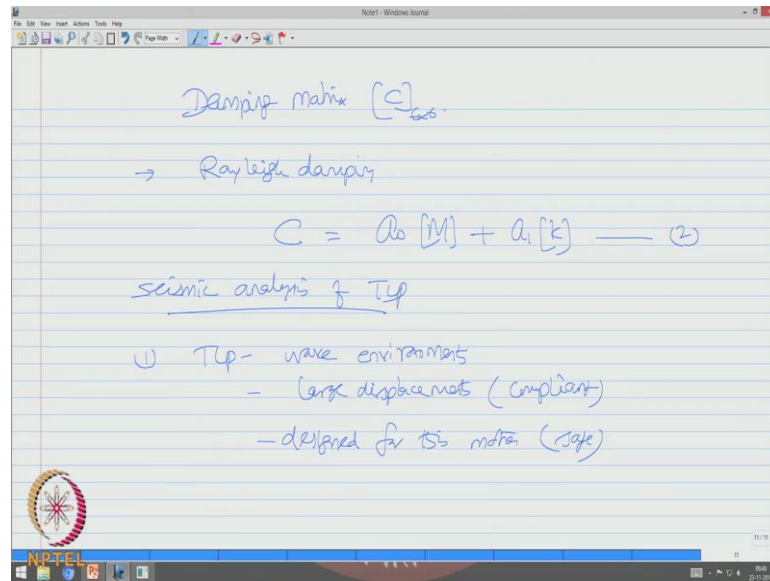 Note1 - Windows Journal
File Edit View Insert Actions Tools Help
Page Width
Damping matrix [C]6x6.
→ Rayleigh damping
C = a0 [M] + a1 [K] — (2)
seismic analysis of TLP
① TLP - wave environment
- large displacements (compliant)
- designed for this motion (safe)
NPTEL
11/11
11
09:40